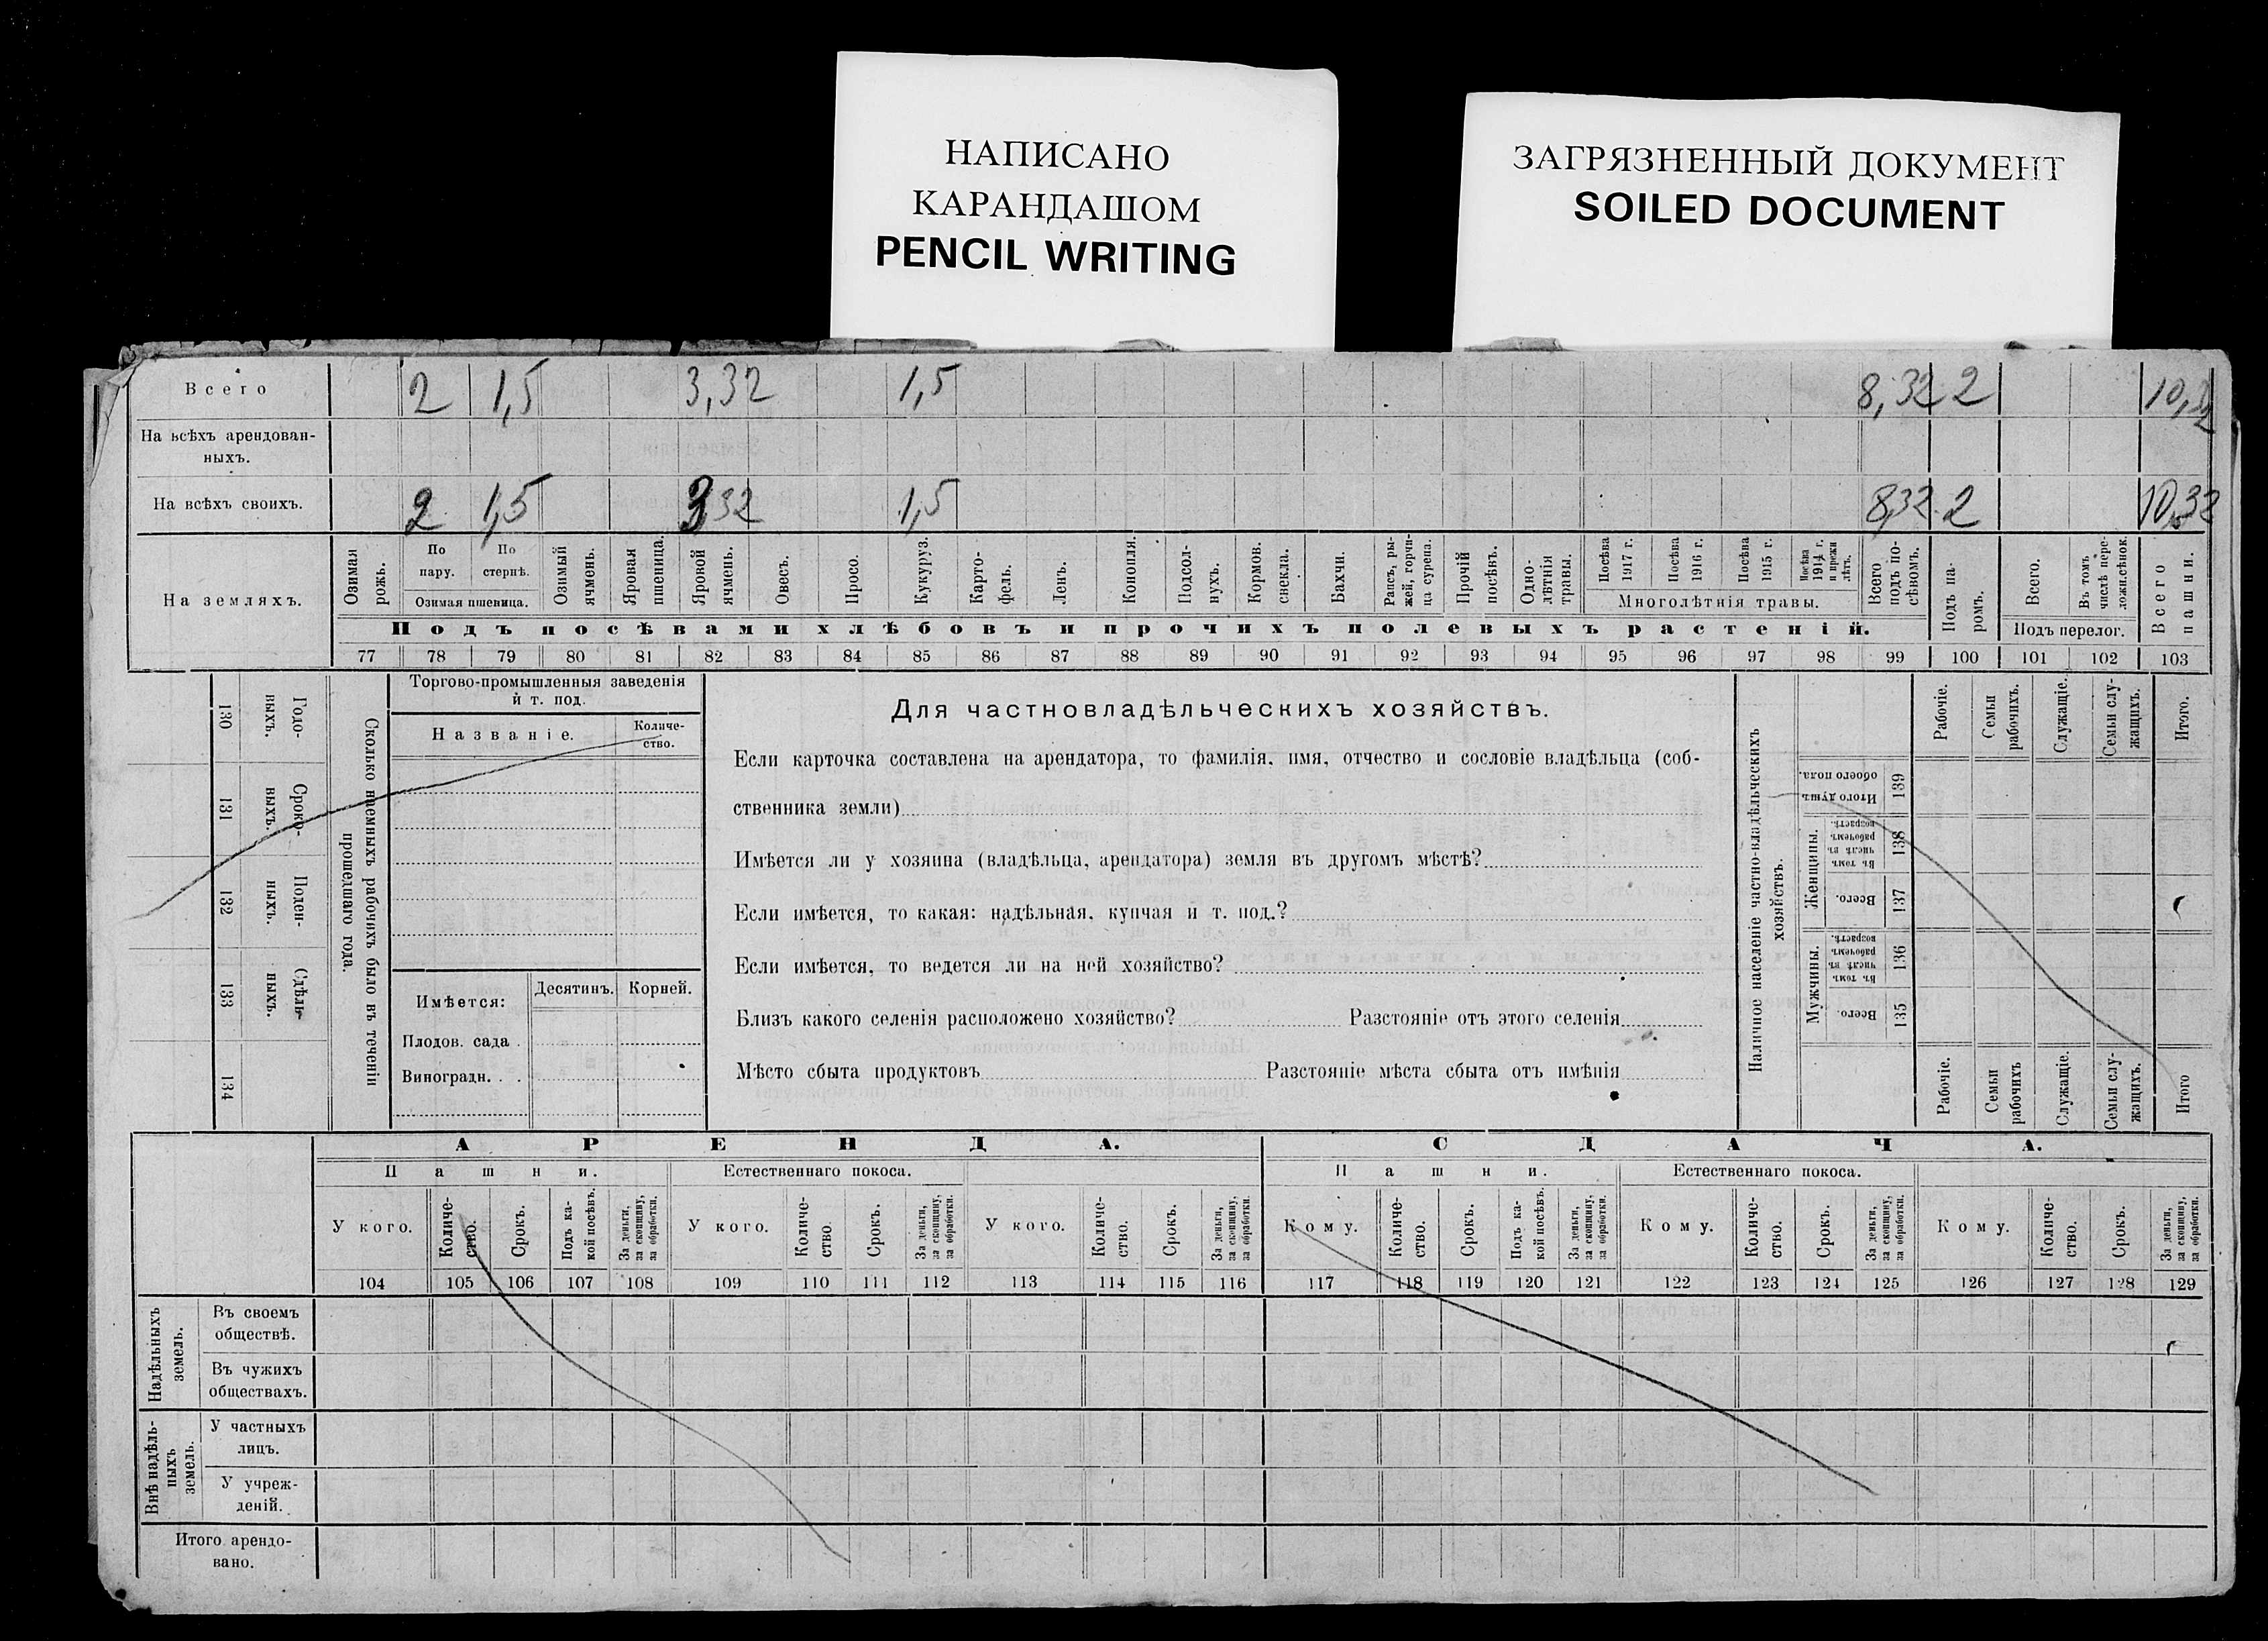 НАПИСАНО
КАРАНДАШОМ
PENCIL WRITING
ЗАГРЯЗНЕННЫЙ ДОКУМЕНТ
SOILED DOCUMENT
Всего 2 1,5 3,32 1,5 8,32 2 10,32
На всѣхъ арендован-
ныхъ.
На всѣхъ своихъ. 2 1,5 3,32 1,5 8,32 2 10,32
На земляхъ.
Озимая рожь.
По пару.
По стернѣ.
Озимая пшеница.
Озимый ячмень.
Яровая пшеница.
Яровой ячмень.
Овесъ.
Просо.
Кукуруз.
Карто-
фель.
Ленъ.
Конопля.
Подсол-
нухъ.
Кормов. свекла.
Бахчи.
Рапсъ, ры-
жей, горчи-
ца сурепа.
Прочій посѣвъ.
Одно-
лѣтнія травы.
Посѣва 1917 г.
Посѣва 1916 г.
Посѣва 1915 г.
Посѣва 1914 г. и прежн лѣтъ.
Многолѣтнія травы.
Всего подъ по-
сѣвомъ.
Подъ па-
ромъ.
Всего.
Въ томъ числѣ пере-
ложн.сѣнок.
Подъ перелог.
Всего пашни.
Подъ посѣвами хлѣбовъ и прочихъ полевыхъ растеній.
77 78 79 80 81 82 83 84 85 86 87 88 89 90 91 92 93 94 95 96 97 98 99 100 101 102 103
130 Годо-
выхъ.
131 Сроко-
ныхъ.
132 Поден-
ныхъ.
133 Сдѣль-
ныхъ.
134
Сколько наемныхъ рабочихъ было въ теченіи
прошедшаго года.
Торгово-промышленныя заведенія
и т. под.
Названіе.
Количе-
ство.
Имѣется:
Десятинъ. Корней.
Плодов. сада .
Виноградн. . .
Для частновладѣльческихъ хозяйствъ.
Если карточка составлена на арендатора, то фамилія, имя, отчество и сословіе владѣльца (соб-
ственника земли)
Имѣется ли у хозяина (владѣльца, арендатора) земля въ другомъ мѣстѣ?
Если имѣется, то какая: надѣльная, купчая и т. под.?
Если имѣется, то ведется ли на ней хозяйство?
Близъ какого селенія расположено хозяйство? Разстояніе отъ этого селенія
Мѣсто сбыта продуктовъ Разстояніе мѣста сбыта отъ имѣнія
Наличное населеніе частно-владѣльческихъ
хозяйствъ.
Рабочіе.
Семьи рабочихъ.
Служащіе.
Семьи слу-
жащихъ.
Итого.
Итого душъ обоего пола. 139
Женщины.
Въ томъ числѣ въ рабочемъ возрастѣ. 138
Всего. 137
Мужчины.
Въ томъ числѣ въ рабочемъ возрастѣ. 136
Всего. 135
Рабочіе.
Семьи рабочихъ
Служащіе.
Семьи слу-
жащихъ.
Итого
АРЕНДА. СДАЧА.
Пашни. Естественнаго покоса. Пашни. Естественнаго покоса.
У кого.
Количе-
ство.
Срокъ.
Подъ ка-
кой посѣвъ.
За деньги, за скопщину, за обработки.
У кого.
Количе-
ство
Срокъ.
За деньги, за скопщину, за обработки.
У кого.
Количе-
ство.
Срокъ.
За деньги, за скопщину, за обработки.
Кому.
Количе-
ство.
Срокъ.
Подъ ка-
кой посѣвъ.
За деньги, за скопщину, за обработки.
Кому.
Количе-
ство.
Срокъ.
За деньги, за скопщину, за обработки.
Кому.
Количе-
ство.
Срокъ.
За деньги, за скопщину, за обработки.
104 105 106 107 108 109 110 111 112 113 114 115 116 117 118 119 120 121 122 123 124 125 126 127 128 129
Надѣльныхъ
земель.
Въ своемъ
обществѣ.
Въ чужихъ
обществахъ.
Внѣ надѣль-
ныхъ
земель.
У частныхъ
лицъ.
У учреж-
деній.
Итого арендо-
вано.